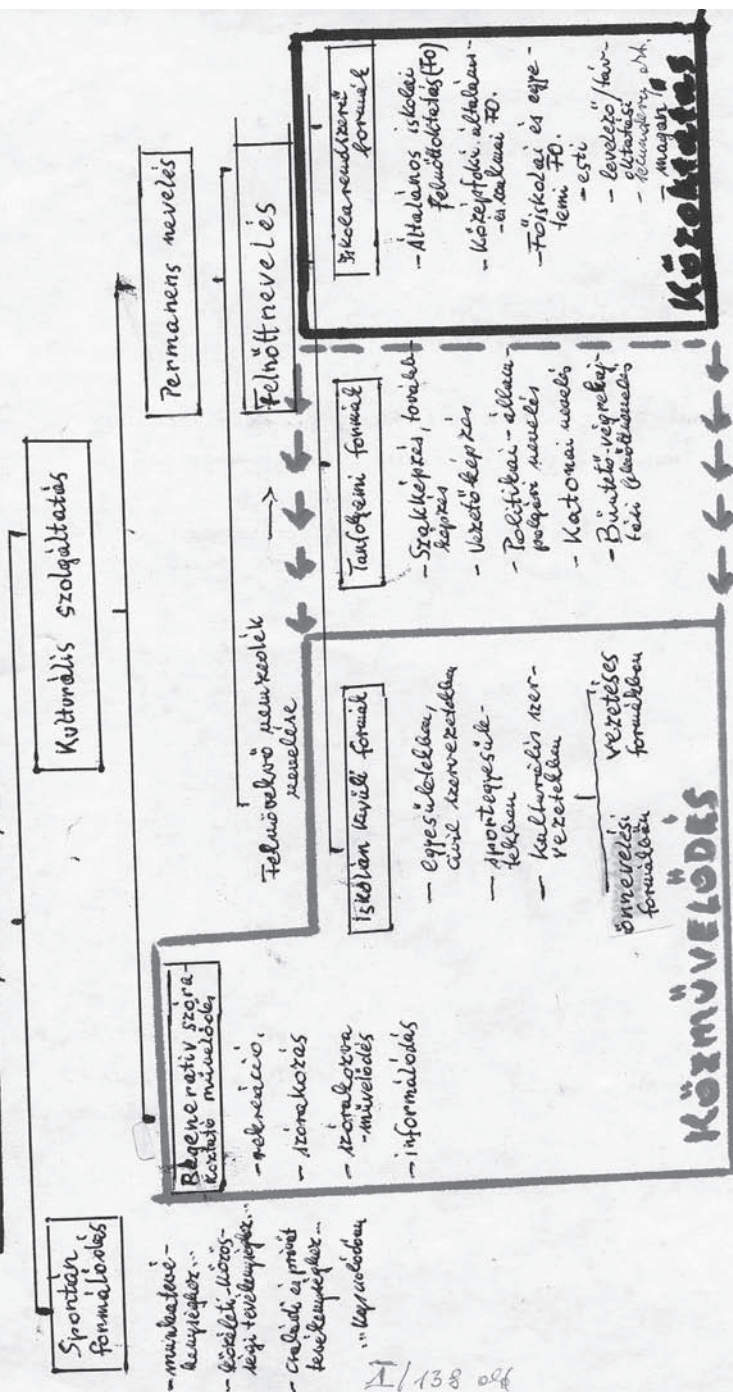 Kulturális szolgáltatás
Spontán
formálódás
- munkatevé-
kenységhez...
- közéleti-közös-
ségi tevékenységhez...
- családi és privát
tevékenységhez...
...kapcsolódóan
Permanens nevelés
Regeneratív szóra-
koztató művelődés
- rekreáció,
- szórakozás
- szórakozva
-művelődés
- informálódás
Felnövekvő nemzedék
nevelése
Felnőttnevelés
Iskolán kívüli formák
- egyesületekben,
civil szervezetekben
- sportegyesüle-
tekben
- Kulturális szer-
vezetekben
önnevelési
formákban
vezetéses
formákban
KÖZMŰVELŐDÉS
Tanfolyami formák
- Szakképzés, tovább-
képzés
- Vezetőképzés
- Politikai-állam-
polgári nevelés
- Katonai nevelés
- Büntető-végrehaj-
tási felnőttnevelés
Iskolarendszerű
formák
- Általános iskolai
Felnőttoktatás (FO)
- Középfokú általános-
és szakmai FO.
- Főiskolai és egye-
temi FO.
- esti
- levelező/táv-
oktatási
- magán
Közoktatás
I/138